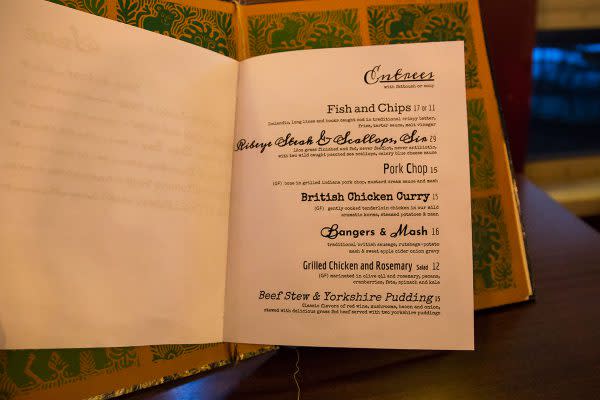 Entrees
with fattoush or soup
Fish and Chips 17 or 11
Icelandic, long lines and hooks caught cod in traditional crispy batter,
fries, tarter sauce, malt vinegar
Ribeye Steak & Scallops, Sir 29
12oz grass finished and fed, never feedlot, never antibiotic,
with two wild caught pacific sea scallops, celery blue cheese sauce
Pork Chop 15
(GF) bone in grilled Indiana pork chop, mustard cream sauce and mash
British Chicken Curry 15
(GF) gently cooked tenderloin chicken in our mild
aromatic korma, steamed potatoes & naan
Bangers & Mash 16
traditional british sausage, rutabaga-potato
mash & sweet apple cider onion gravy
Grilled Chicken and Rosemary Salad 12
(GF) marinated in olive oil and rosemary, pecans,
cranberries, feta, spinach and kale
Beef Stew & Yorkshire Pudding 15
Classic flavors of red wine, mushrooms, bacon and onion,
stewed with delicious grass fed beef served with two yorkshire puddings